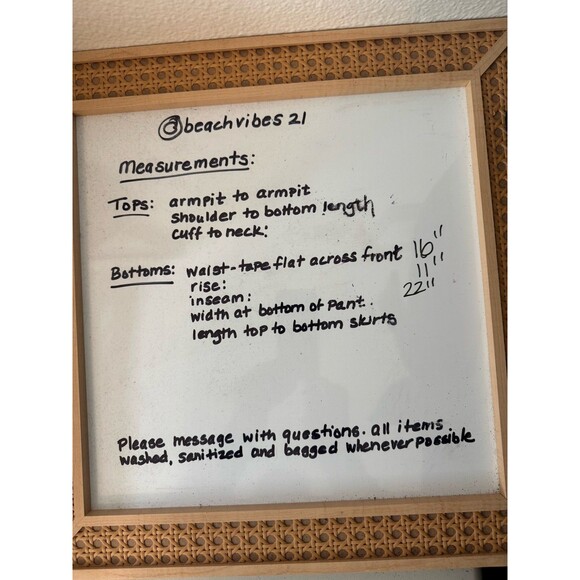 @beachvibes21
Measurements:
Tops: armpit to armpit
shoulder to bottom length
cuff to neck:
Bottoms: waist-tape flat across front 16"
rise: 11"
inseam: 22"
width at bottom of pant.
length top to bottom skirts
Please message with questions. all items
washed, sanitized and bagged whenever possible